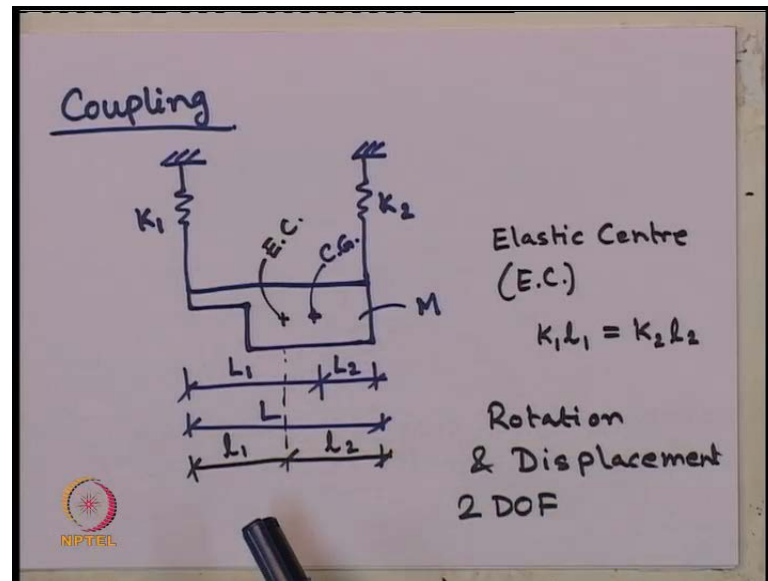 Coupling
K₁
K₂
E.C.
C.G.
M
L₁ L₂
L
l₁ l₂
Elastic Centre
(E.C.)
K₁l₁ = K₂l₂
Rotation
& Displacement
2 DOF
NPTEL